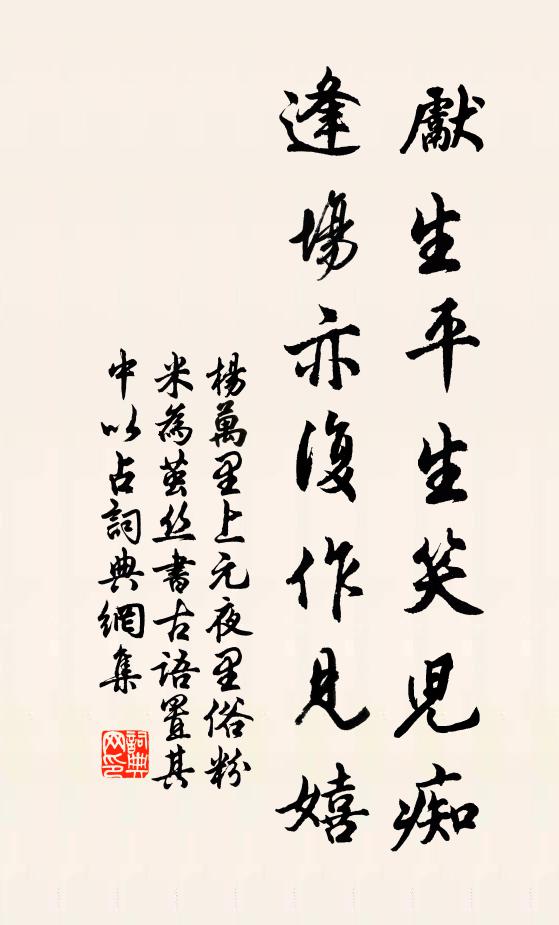 獻生平生笑児痴
逢場亦復作見嬉
楊萬里上元夜里俗粉
米為茧丝書古語置其
中以占詞典網集
詞典
网印